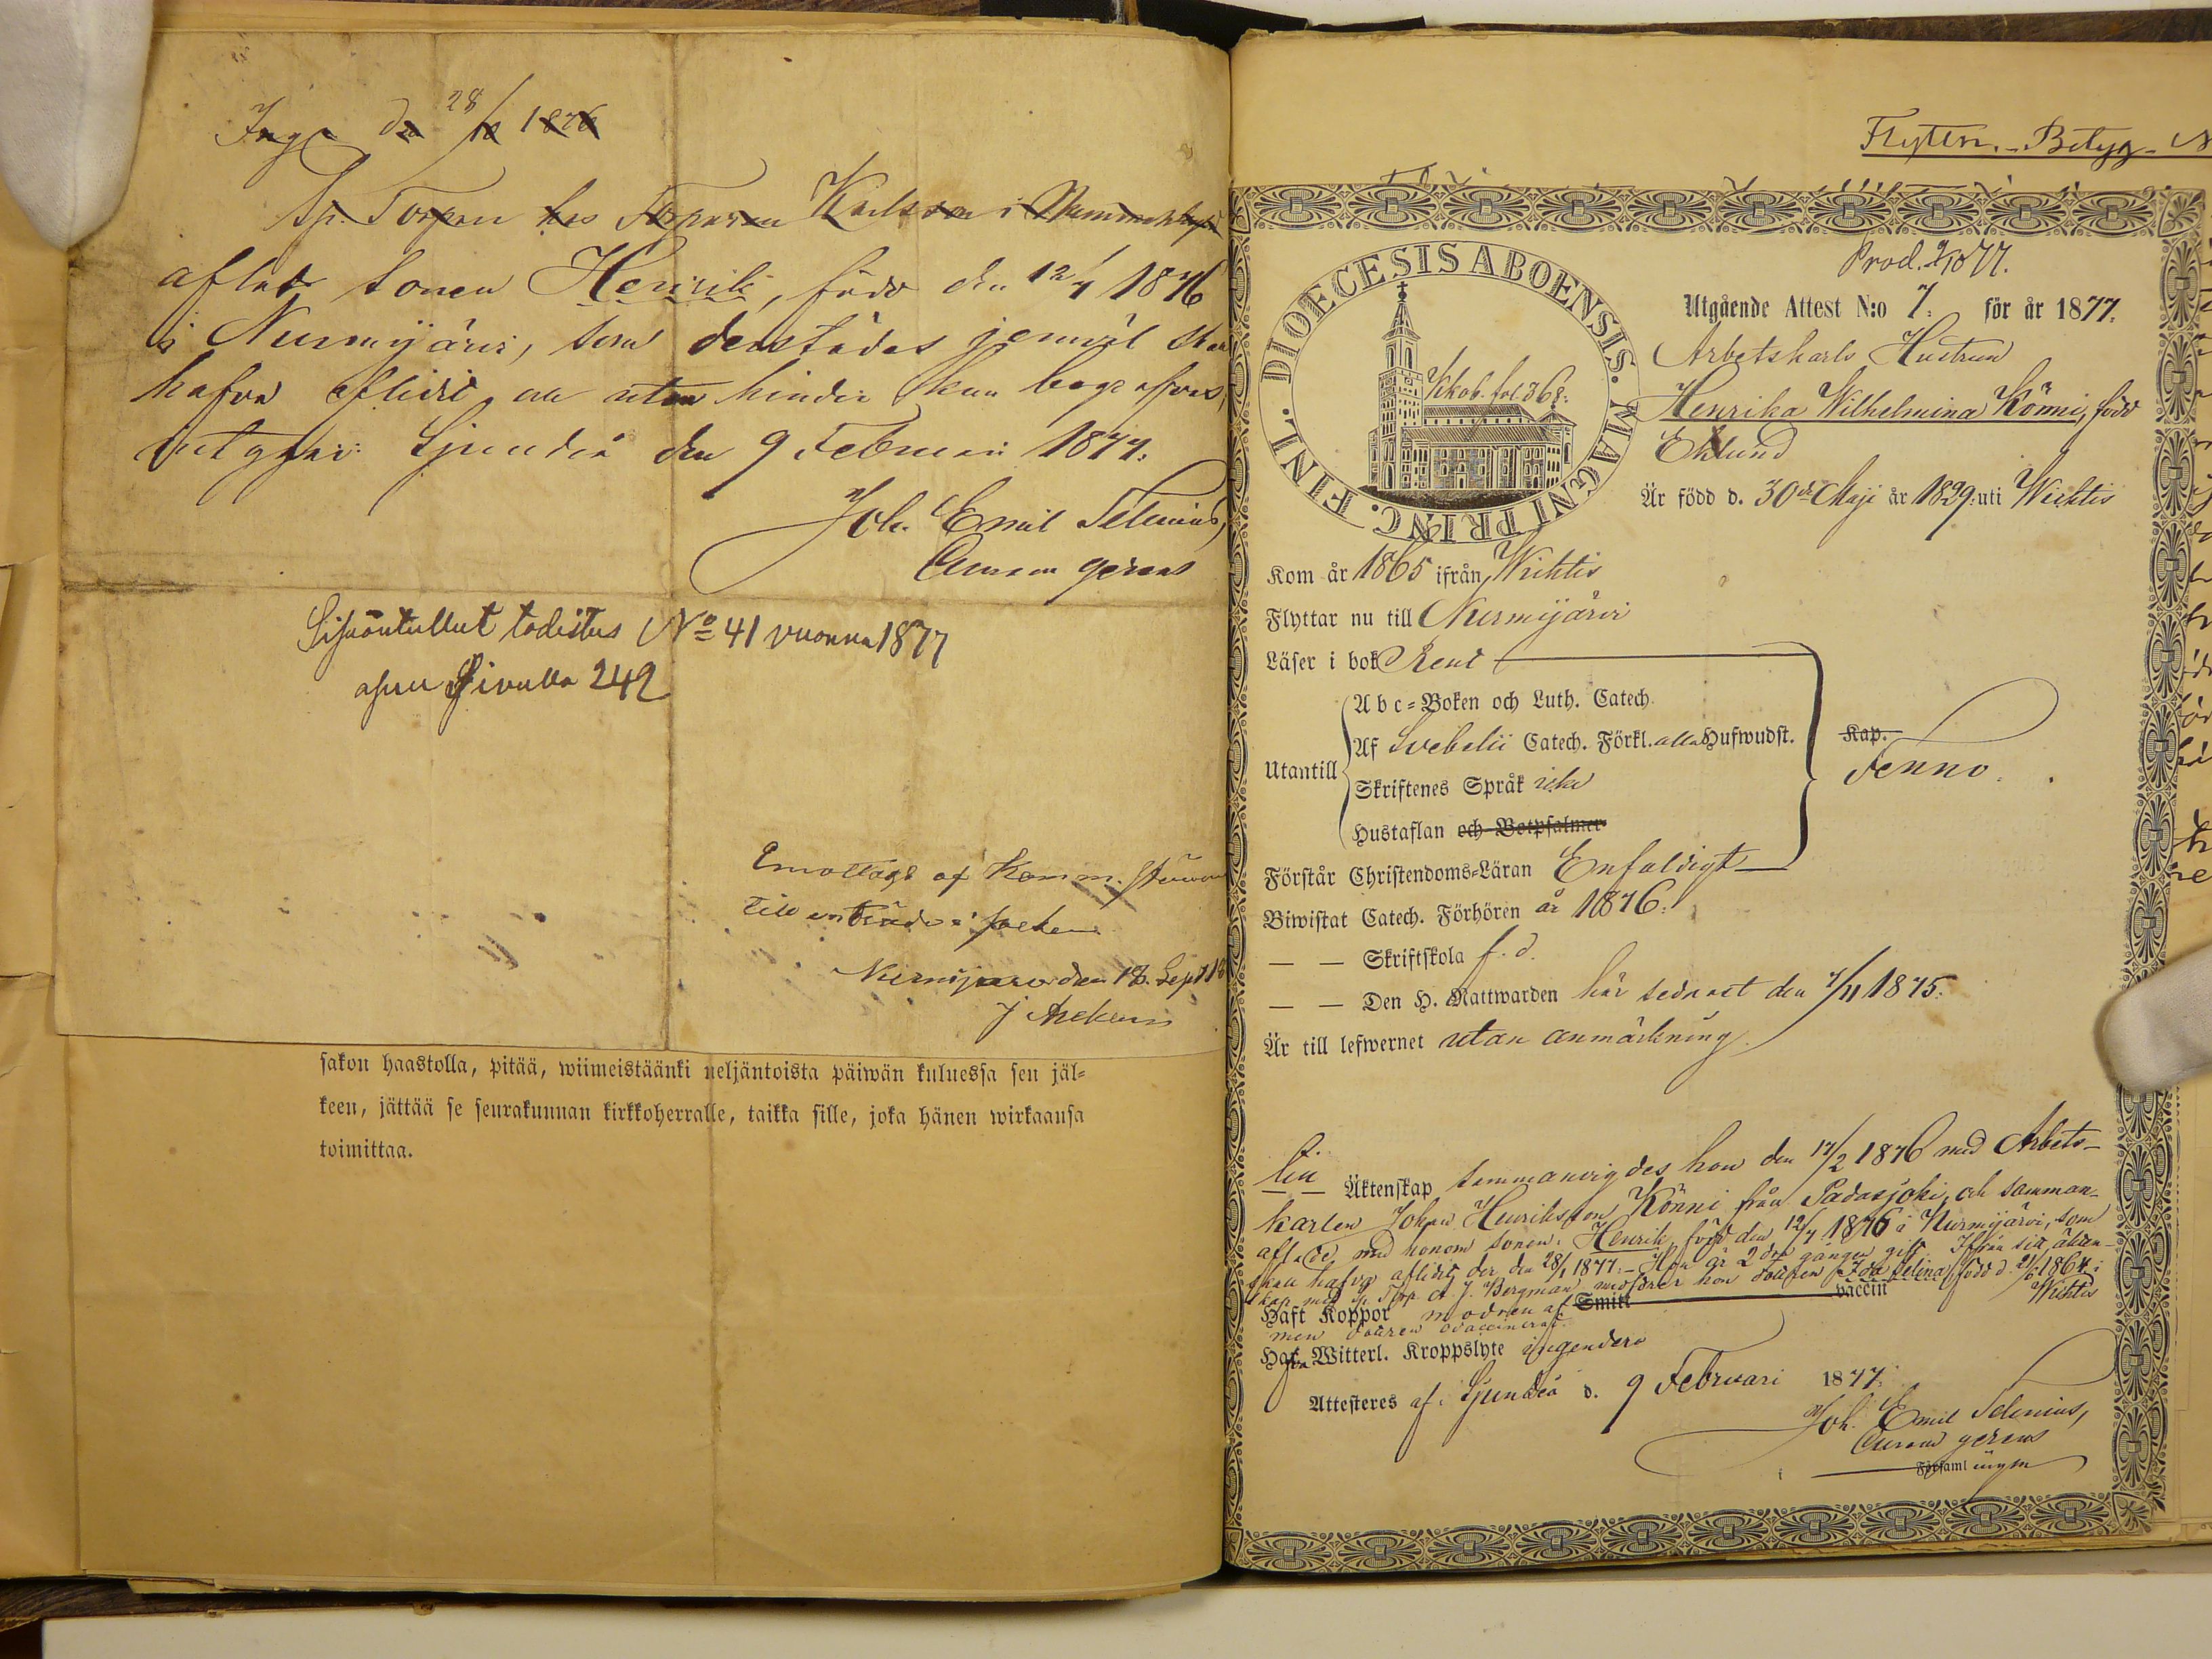 Ingå d. 28/10 1876
Sp. Torpare hos Torparen Karlsson i
aflade sonen Henrik, född den 12/7 1876
i Nurmijärvi, som derstädes jemväl skall
hafva aflidit, och utan hinder kan begrafvas,
betygar: Sjundeå den 9 Februari 1877.
Joh. Emil Selenius,
Curam gerens
Sisääntullut todistus No 41 vuonna 1877
asuu Sivulla 242
Emottags af Komm. Styrelsen
till inträde i socken
Nurmijärvi den 18. Sept 18
J
sakon haastolla, pitää, wiimeistäänki neljäntoista päiwän kuluessa sen jäl-
keen, jättää se seurakunnan kirkkoherralle, taikka sille, joka hänen wirkaansa
toimittaa.
Flyttn.-Betyg N
Prod. 2/10 77.
DIOECESIS ABOENSIS. MAGNI PRINC. FINL.
Kkob. fol. 368.
Utgående Attest N:o 7. för år 1877.
Arbetskarls Hustrun
Henrika Wilhelmina Könni, född
Eklund
Är född d. 30de Maji år 1829 uti Wichtis
Kom år 1865 ifrån Wichtis
Flyttar nu till Nurmijärvi
Läser i bok Rent
Utantill
A b c-Boken och Luth. Catech.
Af Svebelii Catech. Förkl. alla Hufwudst.
Skriftenes Språk icke
Hustaflan och Botpsalmer
Kap.
Fenno.
Förstår Christendoms-Läran Enfaldigt
Biwistat Catech. Förhören år 1876.
— — Skriftskola f. d.
— — Den H. Nattwarden här sednast den 7/11 1875.
Är till lefwernet utan anmärkning.
Till Äktenskap sammanvigdes hon den 17/2 1876 med Arbets-
karlen Johan Henriksson Könni från Padasjoki, och samman-
aflade med honom sonen: Henrik, född den 12/7 1876 i Nurmijärvi, som
skall hafva aflidit der den 28/1 1877.- Hon är 2 dra gången gift. Ifrån sitt äkten-
skap med Sp. Torp. A. J. Bergman medförer hon dottren Ida Selina, född d. 21/6 1864 i
Wichtis
Haft Koppor modren af Smitt vaccin
men dottren ovaccinerad.
Hafva Witterl. Kroppslyte ingendera
Attesteres af: Sjundeå d. 9 Februari 1877.
Joh. Emil Selenius,
Curam gerens
i Församlingen